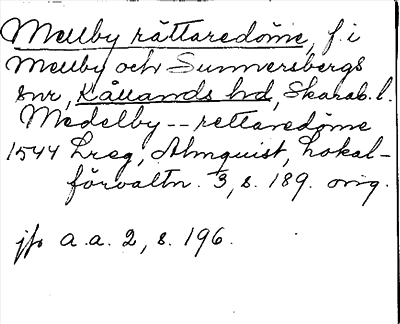 Mellby rättaredöme, f. i
Mellby och Sunnersbergs
snr, Kållands hd, Skarab. l.
Medelby -- rettaredöme
1544 Lreg, Almquist, Lokal-
förvaltn. 3, s. 189. orig.
jfr a. a. 2, s. 196.